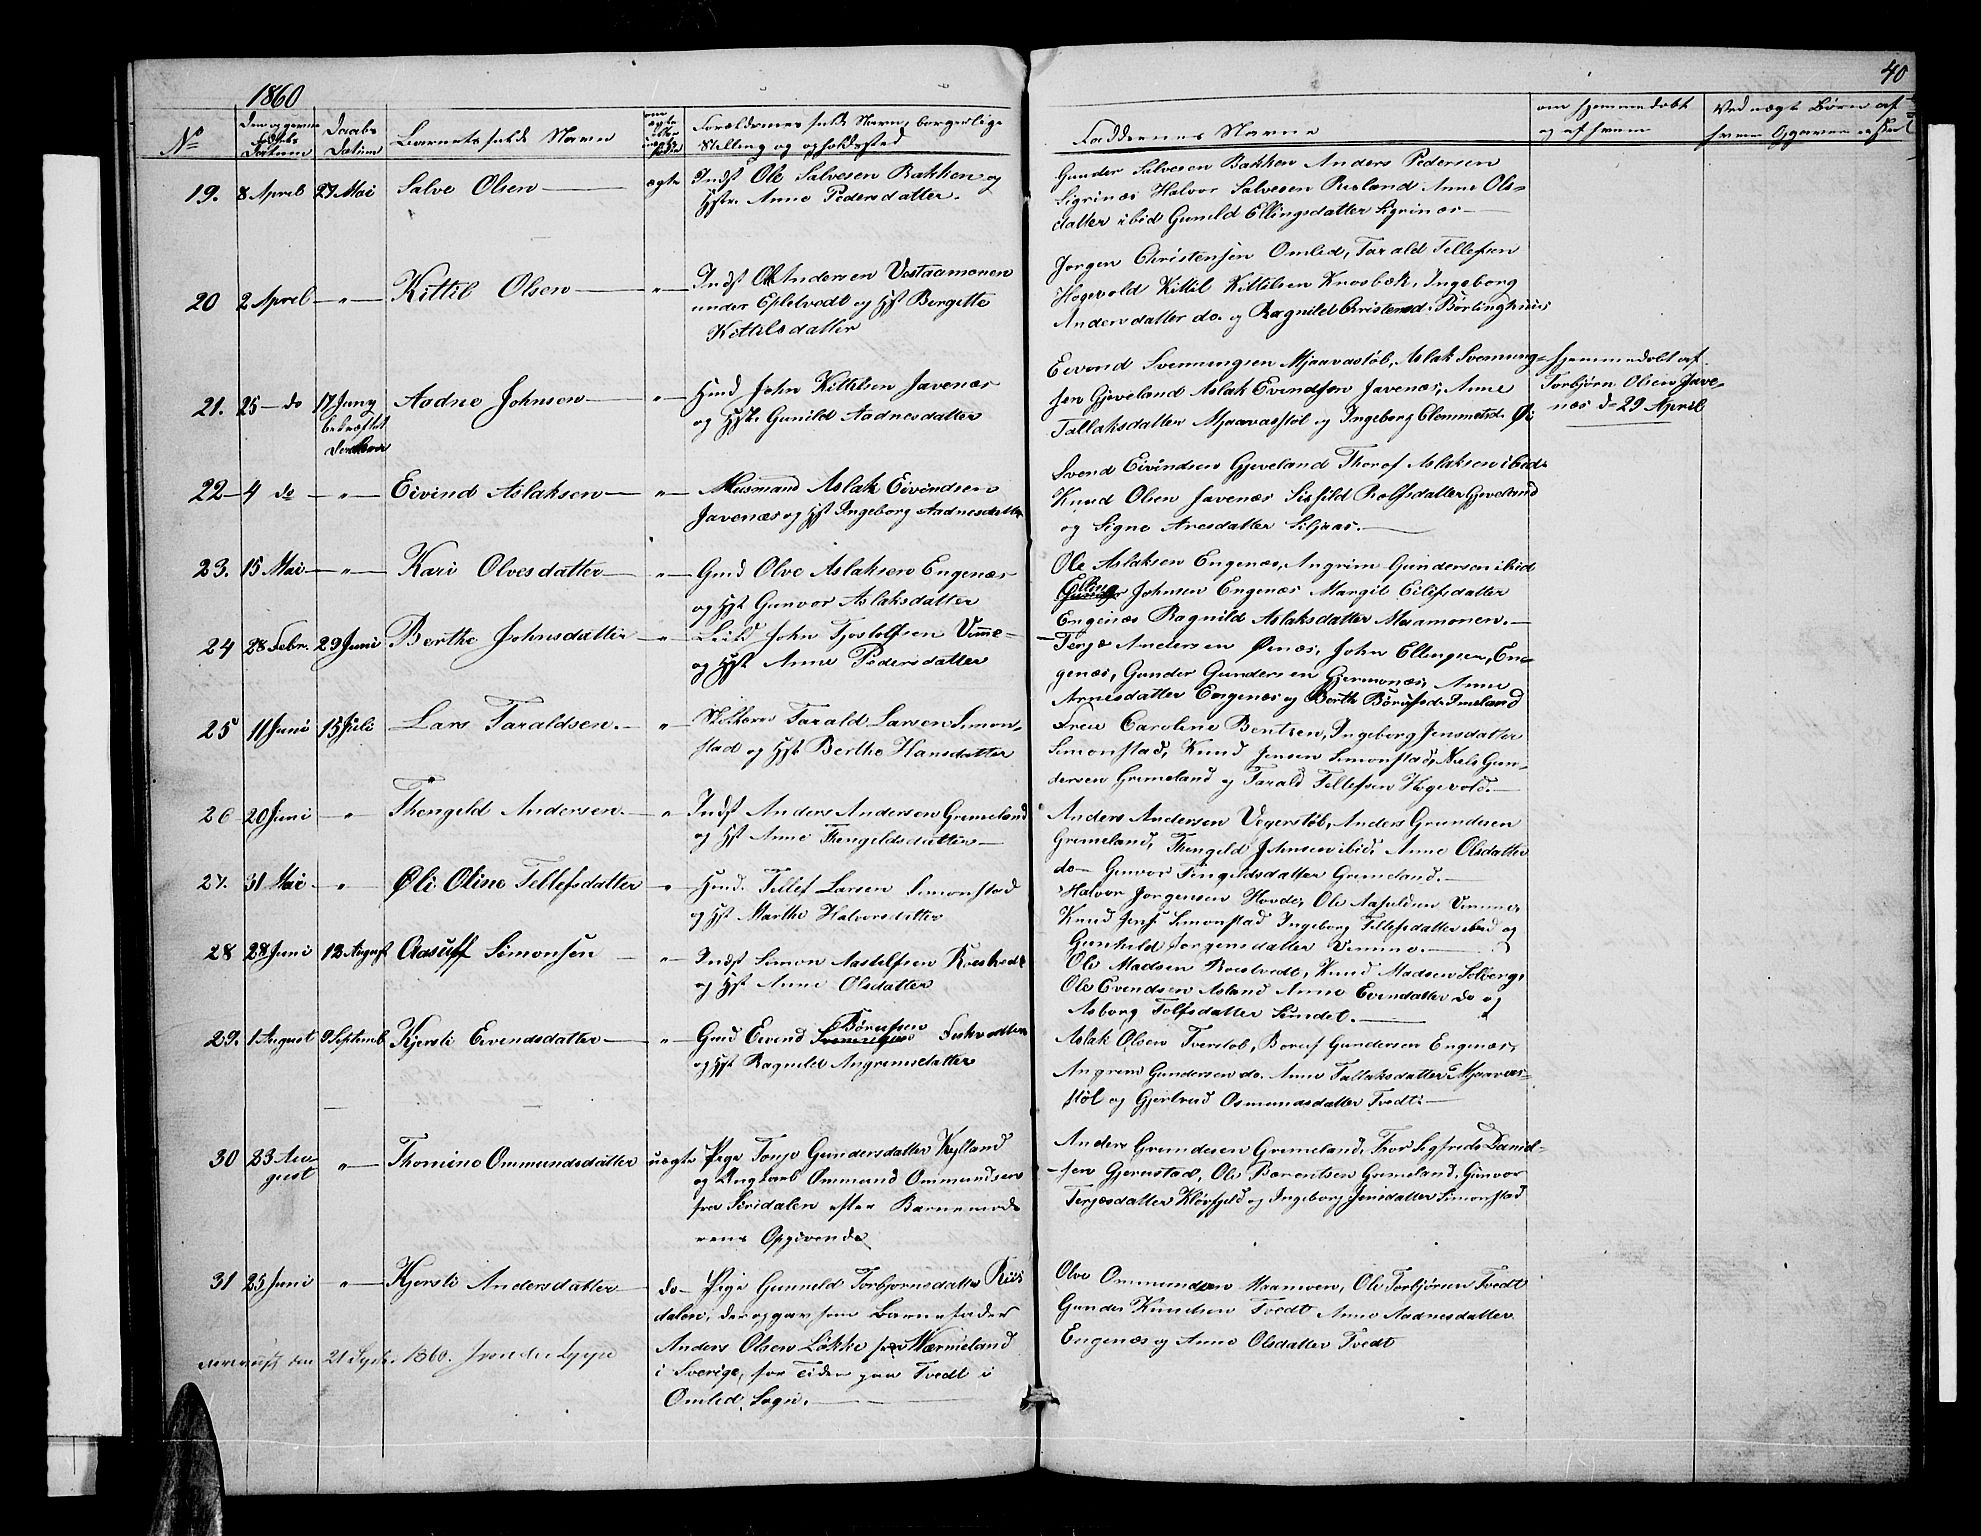 40
1860
No
Fødsels Datum
Daabs Datum
Barnets fulde Navn
Forældrenes fulde Navn, borgerlige Stilling og opholdssted
Faddernes Navne
om hjemmedøbt og af hvem
19. 8 April 27 Mai Salve Olsen ægte
Indst Ole Salvesen Bakken og
Hstr. Anne Pedersdatter.
Gunder Salvesen Bakken Anders Pedersen
Sigrinæs Halvor Salvesen Risland Anne Ols-
datter ibid Gunild Ellingsdatter Sigrinæs
20 2 April " Kittil Olsen "
Indst Ole Andersen
under Epletvedt og Hst Bergitte
Kittilsdatter
Jørgen Christensen Omlid, Tarald Tellefsen
Hogevold Kittil Kittilsen Knosbæk, Ingeborg
Andersdatter do. og Ragnild Christensd.
21. 25 do 17 Juny
Aadne Johnsen "
Hmd John Kittilsen Javenæs
og Hstr Gunild Aadnesdatter
Eivend Svenningsen Mjaavastøl, Aslak Svenning-
sen Gjeveland Aslak Evindsen Javenæs, Anne
Tallaksdatter Mjaavasstøl og Ingeborg Clemmetsd.
hjemmedøbt af
Torbjørn Olsen Jave-
næs d 29 April
22 4 do " Eivind Aslaksen "
Husmand Aslak Eivindsen
Javenæs og Hst Ingeborg Aadnesdatter
Svend Eivindsen Gjeveland Thorof Aslaksen ibid.
Knud Olsen Javenæs Sigfild Rolfsdatter Gjeveland
og Signe Aresdatter Siljaas.
23. 15 Mai " Kari Olvesdatter "
Gmd Olve Aslaksen Engenæs
og Hst Gunvor Aslaksdatter
Ole Aslaksen Engenæs, Angrim Gundersen ibid
Elling Johnsen Engenæs Margit Eilefsdatter
Engenæs Ragnild Aslaksdatter
24 28 Febr. 29 Juni Berthe Johnsdatter "
Leild John Tjostolfsen Vimme
og Hst Anne Pedersdatter
Terje Andersen Øinæs, John Ellingsen, En-
genæs, Gunder Gundersen Anne
Arnesdatter Engenæs og Berth
25 11 Juni 15 Juli Lars Taraldsen. "
Tarald Larsen Simon-
stad og Hst. Berthe Hansdatter
Frue Caroline Bentzen, Ingeborg Jensdatter
Simonstad, Knud Jensen Simonstad, Niels Gun-
dersen Grimeland og Tarald Tellefsen Hogevold.
26 20 Juni " Thengeld Andersen. "
Indst Anders Andersen Grimeland
og Hst Anne Thengeldsdatter
Anders Andersen Vegerstøl, Anders Grundesen
Grimeland, Thengeld Johnsen ibid, Anne Olsdatter
do Gunvor Tingeldsdatter Grimeland.
27. 31 Mai " Øli Oline Tellefsdatter "
Hmd. Tellef Larsen Simonstad
og Hst Marthe Halvorsdatter
Halvor Jørgensen Hovde, Ole Vimme,
Knud Jens. Simonstad Ingeborg Tellefsdatter ibid og
Gunhild Jørgensdatter Vimme.
28 28 Juni 12 August Aasuff Simonsen "
Indst Simon Roestvedt
og Hst Anne Olsdatter
Ole Madsen Roestvedt, Knud Madsen Solberg,
Ole Evendsen Asland Anne Evendatter do og
Asborg Tolfsdatter Sundet.
29. 1 August 9 Septemb Kjersti Eivendsdatter "
Gmd Eivend Børufsen
og Hst Ragnild Angrimsdatter
Aslak Olsen Tverstøl, Boruf Gundersen Engenæs,
Angrim Gundersen do. Anne Tallaksdatter Mjaavas-
støl og Gjertrud Osmundsdatter Tvedt
30 23 Au-
gust " Thomine Ommundsdatter uægte
Pige Tonje Gundersdatter Kylland
og Ungkarl Ommund Ommundsen
fra Siredalen efter Barnemod-
erens Opgivende
Anders Grundesen Grimeland, Thor Sigfrids Daniel-
sen Gjernstad, Ole Berentsen Grimeland, Gunvor
Terjesdatter Kløvfjeld og Ingeborg Jensdatter Simonstad
31 25 Juni " Kjersti Andersdatter
do Pige Gunnild Torbjørnsdatter Riis
dalen, der opgav som Barnefader
Anders Olsen Løkke fra Wærmeland
i Sverige, for Tiden paa Tvedt i
Omlid Sogn.
Olve Ommundsen Maamoen, Ole Torbjørnn Tvedt
Gunder Knudsen Tvedt Anne Aadnesdatter
Engenæs og Anne Olsdatter Tvedt
21 Sept. 1860.